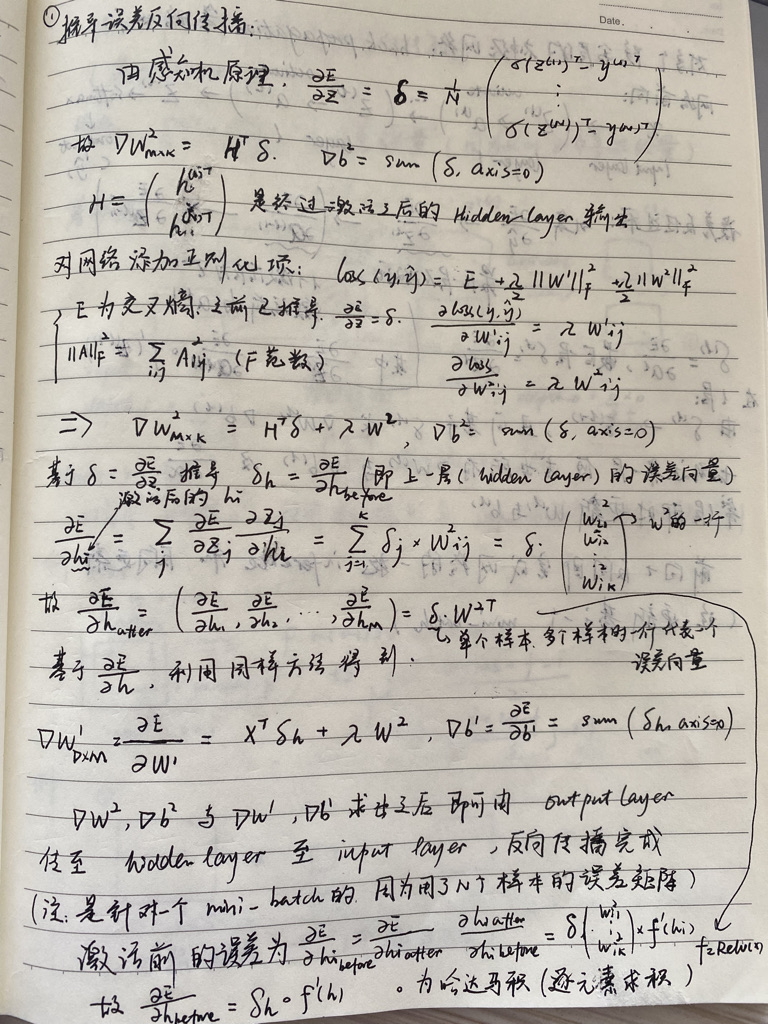 ① 推导误差反向传播:
Date.
由感知机原理, ∂E/∂Z = δ = 1/N ( σ(z⁽¹⁾)ᵀ - y⁽¹⁾ᵀ ⋮ σ(z⁽ᴺ⁾)ᵀ - y⁽ᴺ⁾ᵀ )
故 ∇W²_{M×K} = Hᵀ δ. ∇b² = sum (δ, axis=0)
H = ( h⁽¹⁾ᵀ ⋮ h⁽ᴺ⁾ᵀ ) 是经过激活之后的 Hidden layer 输出
对网络添加正则化项: loss(y,ŷ) = E + λ/2 ||W¹||²_F + λ/2 ||W²||²_F
E为交叉熵, 之前已推导 ∂E/∂z = δ. ∂loss(y,ŷ)/∂W¹ij = λ W¹ij
||A||²_F = Σ_{i,j} A²ij (F范数) ∂loss/∂W²ij = λ W²ij
⇒ ∇W²_{M×K} = Hᵀδ + λ W², ∇b² = sum (δ, axis=0)
基于 δ = ∂E/∂Z 推导 δh = ∂E/∂h_before (即上一层(hidden layer)的误差向量)
激活后的 hi
∂E/∂hi = Σ_j ∂E/∂Zj ∂Zj/∂hi = Σ_{j=1}^{K} δj × W²ij = δ · ( W²i1 W²i2 ⋮ W²iK ) → W²的一行
故 ∂E/∂h_after = (∂E/∂h₁, ∂E/∂h₂, ⋯, ∂E/∂h_M) = δ W²ᵀ
↳ 单个样本. 多个样本时一行代表一个
误差向量
基于 ∂E/∂h, 利用同样方法得到:
∇W¹_{D×M} = ∂E/∂W¹ = Xᵀ δh + λ W², ∇b¹ = ∂E/∂b¹ = sum (δh, axis=0)
∇W², ∇b² 与 ∇W¹, ∇b¹ 求出之后即可由 output layer
传至 hidden layer 至 input layer, 反向传播完成
(注: 是针对一个 mini-batch 的, 因为用了N个样本的误差矩阵)
激活前的误差为 ∂E/∂hi_before = ∂E/∂hi_after ∂hi_after/∂hi_before = δ ( W²i1 ⋮ W²iK ) × f'(hi) f=Relu(x)
故 ∂E/∂h_before = δh ∘ f'(h) ∘ 为哈达马积 (逐元素求积)